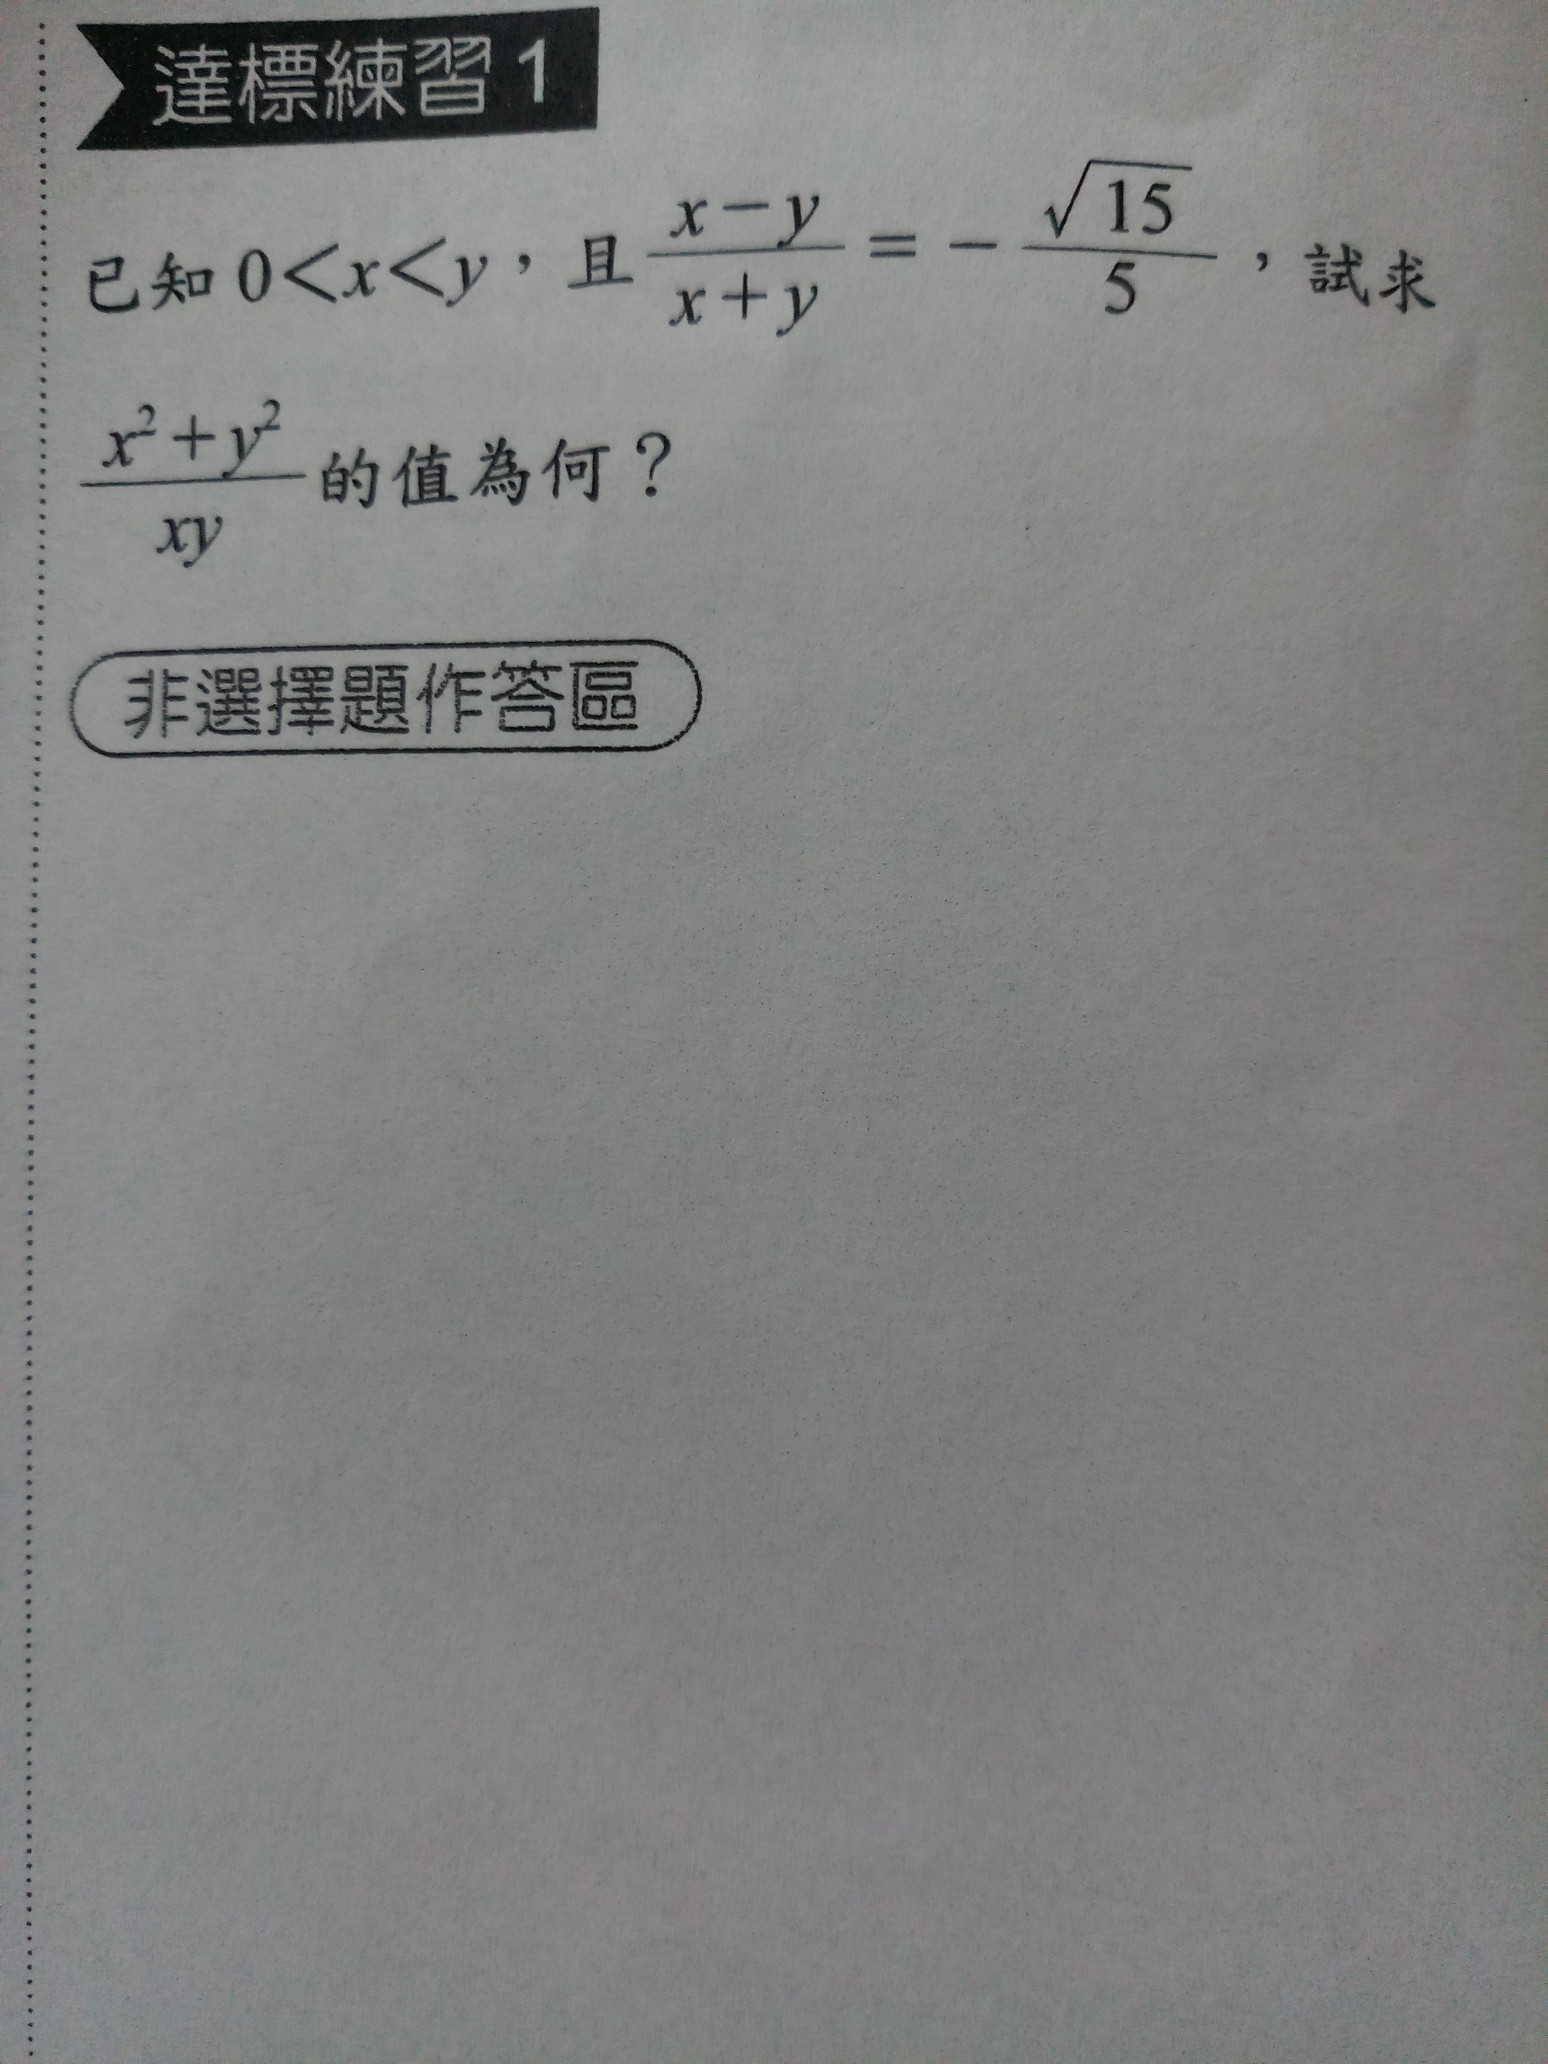 達標練習1
已知 0<x<y，且 \frac{x-y}{x+y} = -\frac{\sqrt{15}}{5}，試求
\frac{x^2+y^2}{xy} 的值為何？
非選擇題作答區